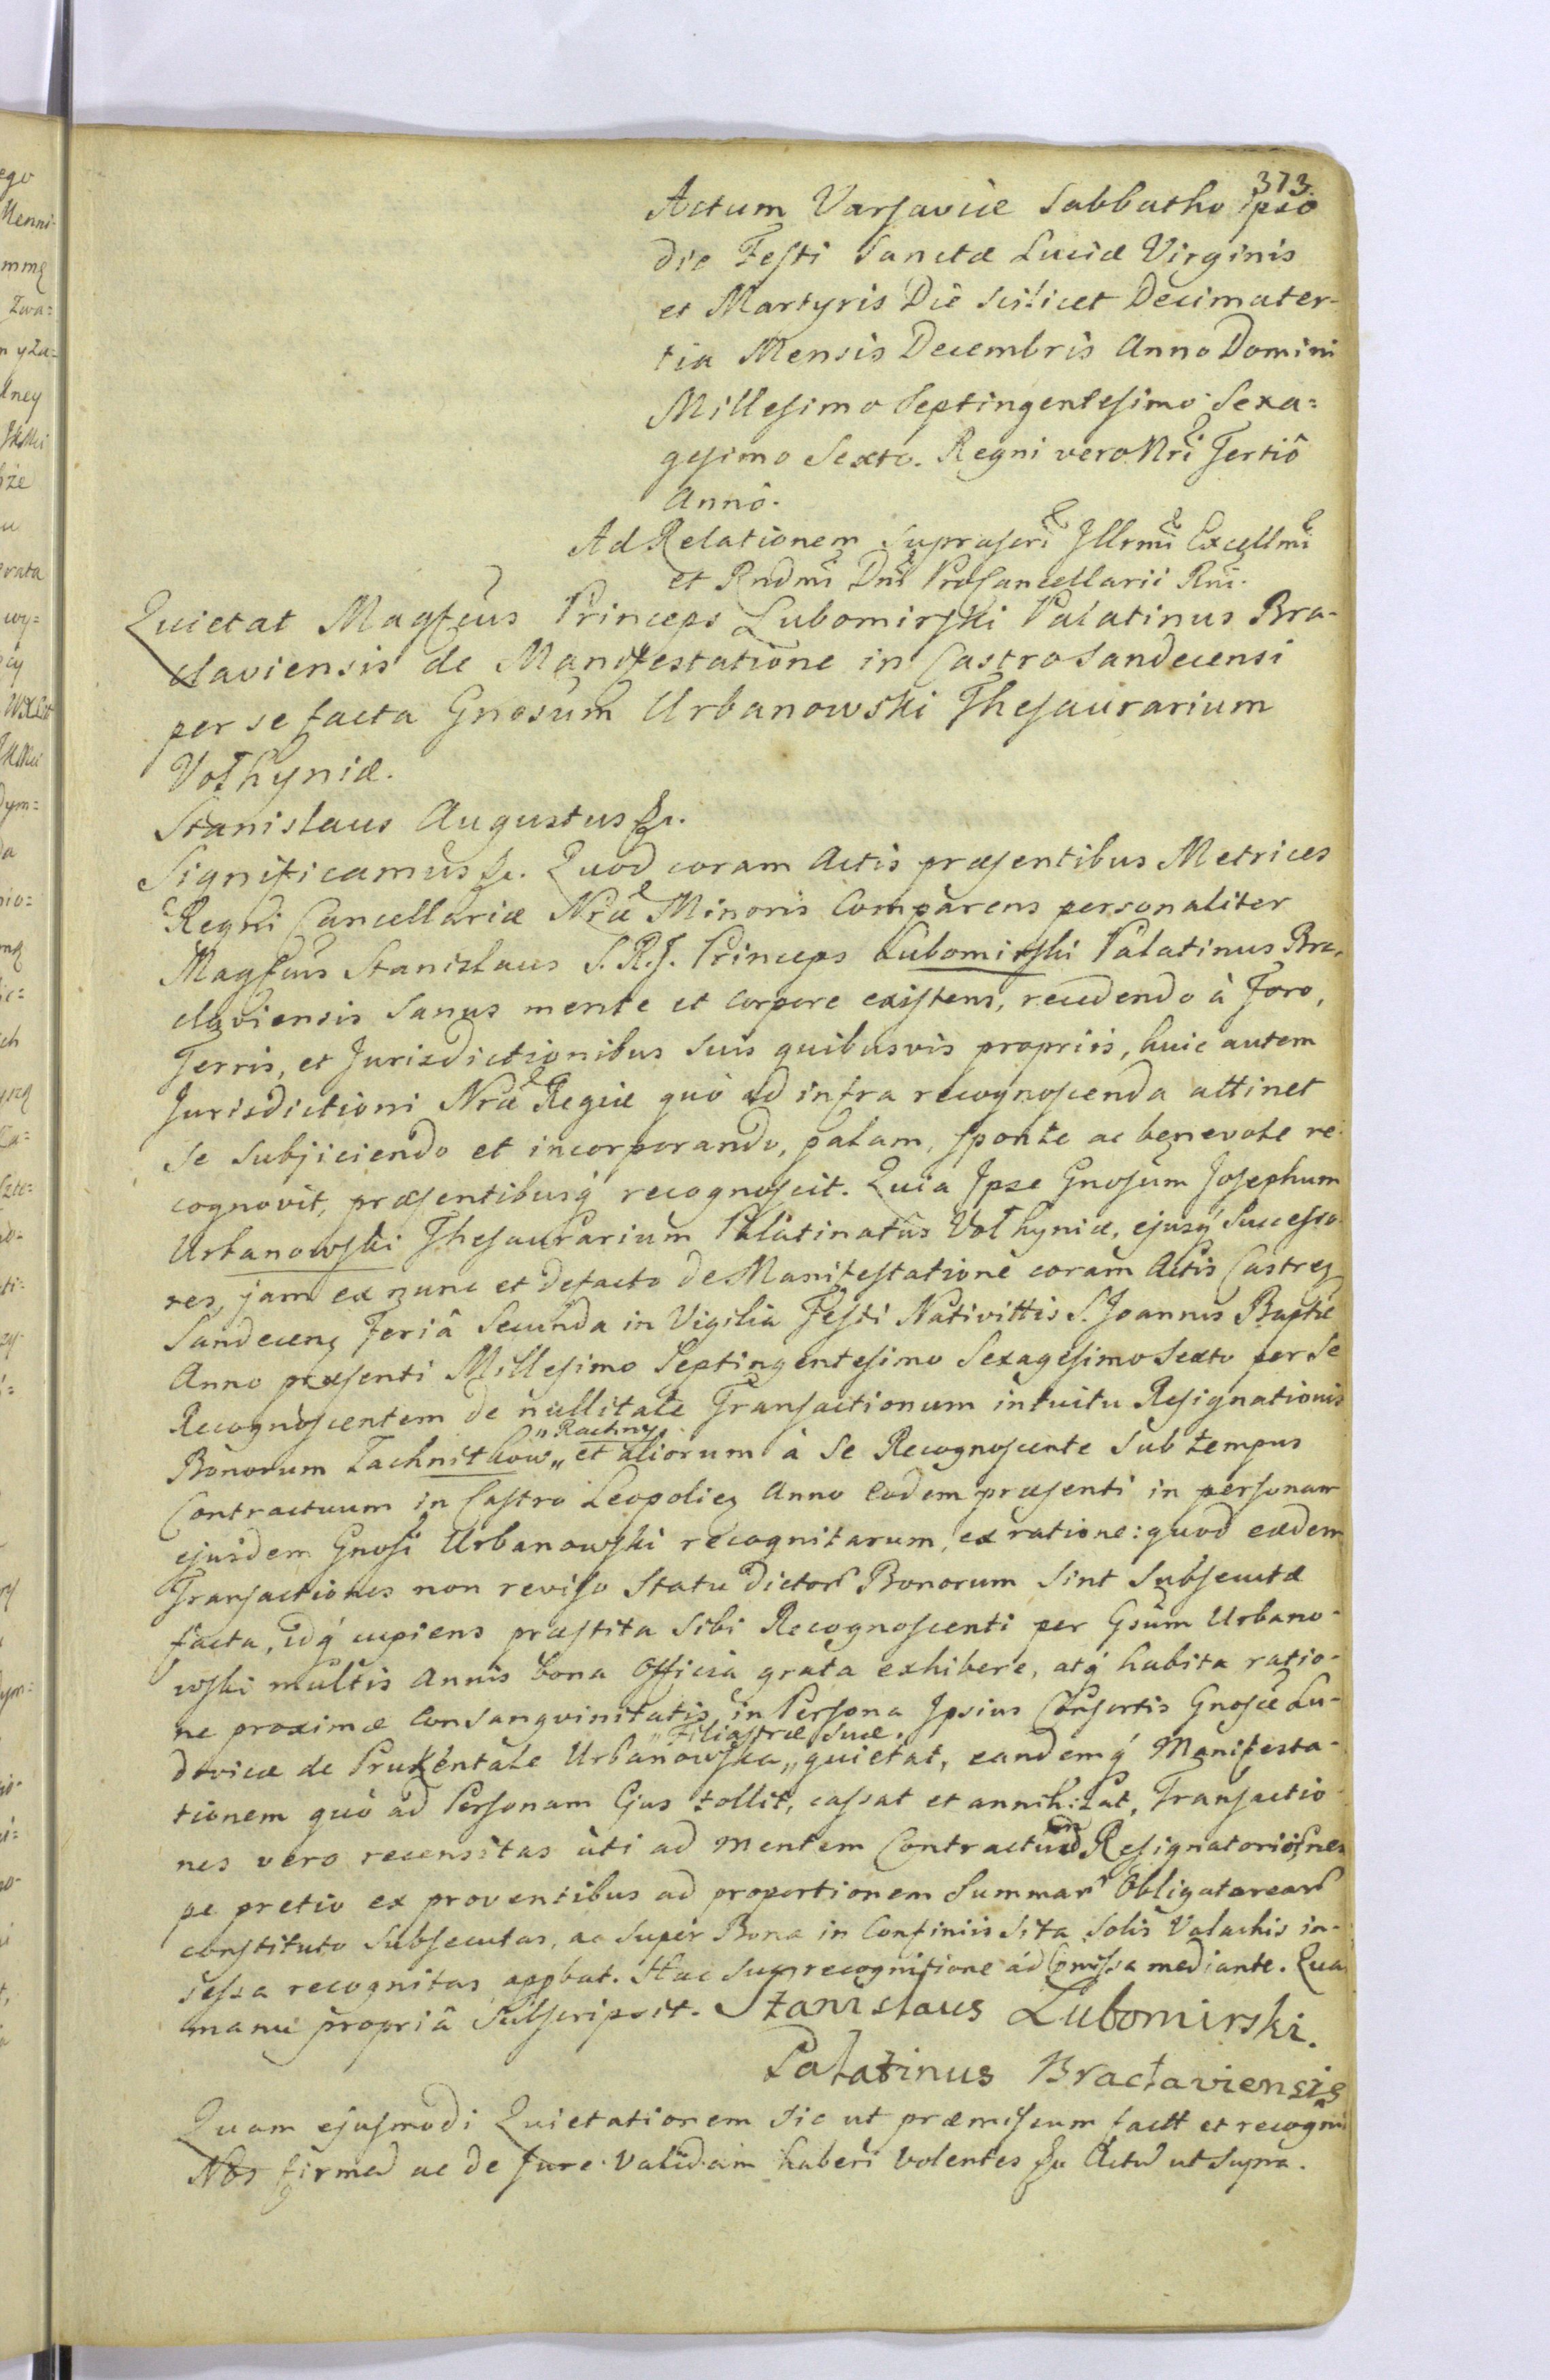 373.
Actum Varsaviæ Sabbatho ipso
die Festi Sanctæ Luciæ Virginis
et Martyris Die scilicet Decimater-
tia Mensis Decembris Anno Domini
Millesimo Septingentesimo Sexa=
gesimo Sexto. Regni vero Nri Tertiô
Annô.
Ad Relationem Suprascri Jllrmi Excellmi
et Rndmi Dni ProCancellarii Rni.
Quietat Magfcus Princeps Lubomirski Palatinus Bra-
claviensis de Manifestatione in Castro Sandecensi
per se facta Gnosum Urbanowski Thesaurarium
Volhyniæ.
Stanislaus Augustus &c.
Significamus &c. Quod coram Actis præsentibus Metrices
Regni Cancellariæ Nræ Minoris Comparens personaliter
Magfcus Stanislaus S. R. J. Princeps Lubomirski Palatinus Bra-
claviensis Sanus mente et corpore existens, recedendo à Foro,
Terris, et Jurisdictionibus suis quibusvis propriis, huic autem
Jurisdictioni Nræ Regiæ quò ad infra recognoscenda attinet
se subjiciendo et incorporando, palam, sponte ac benevole re-
cognovit, præsentibusq recognoscit. Quia Ipse Gnosum Josephum
Urbanowski Thesaurarium Palatinatûs Volhyniæ, ejusq Successo-
res, jam ex nunc et defacto de Manifestatione coram Actis Castren
Sandecen Feriâ Secunda in Vigilia Festi Nativittis S. Joannis Baptæ
Anno præsenti Millesimo Septingentesimo Sexagesimo Sexto per Se
Recognoscentem de nullitate Transactionum intuitu Resignationis
"Rachny.
Bonorum Lachnitkow „ et aliorum à Se Recognoscente Sub tempus
Contractuum in Castro Leopolien Anno Eodem præsenti in personam
ejusdem Gnosi Urbanowski recognitarum, ex ratione: quod eædem
Transactiones non reviso Statu dictor Bonorum sint subsecutæ
facta, idq cupiens præstita sibi Recognoscenti per Gsum Urbano-
wski multis Annis bona Officia grata exhibere, atq habita ratio-
ne proximæ Consangvinitatis in Persona Ipsius Consortis Gnosæ Lu-
"Filiastræ Suæ.
dovicæ de Urbanowska „ quietat, eandemq Manifesta-
tionem quò ad Personam Ejus tollit, cassat et annihilat, Transactio-
nes vero recensitas uti ad mentem Contractuum Resignatorii, nem
pe pretio ex proventibus ad proportionem Summar
constituto subsecutas, ac super Bona in Confiniis sita Solis Valachis in-
sessa recognitas appbat. Hac sua recognitione ad pmissa mediante. Qua
manu propriâ Subscripsit. Stanislaus Lubomirski.
Palatinus Braclaviensis
Quam ejusmodi Quietationem sic ut præmissum factt et recogni
Nos firmā ac de Jure validam haberi volentes &c Actū ut supra.